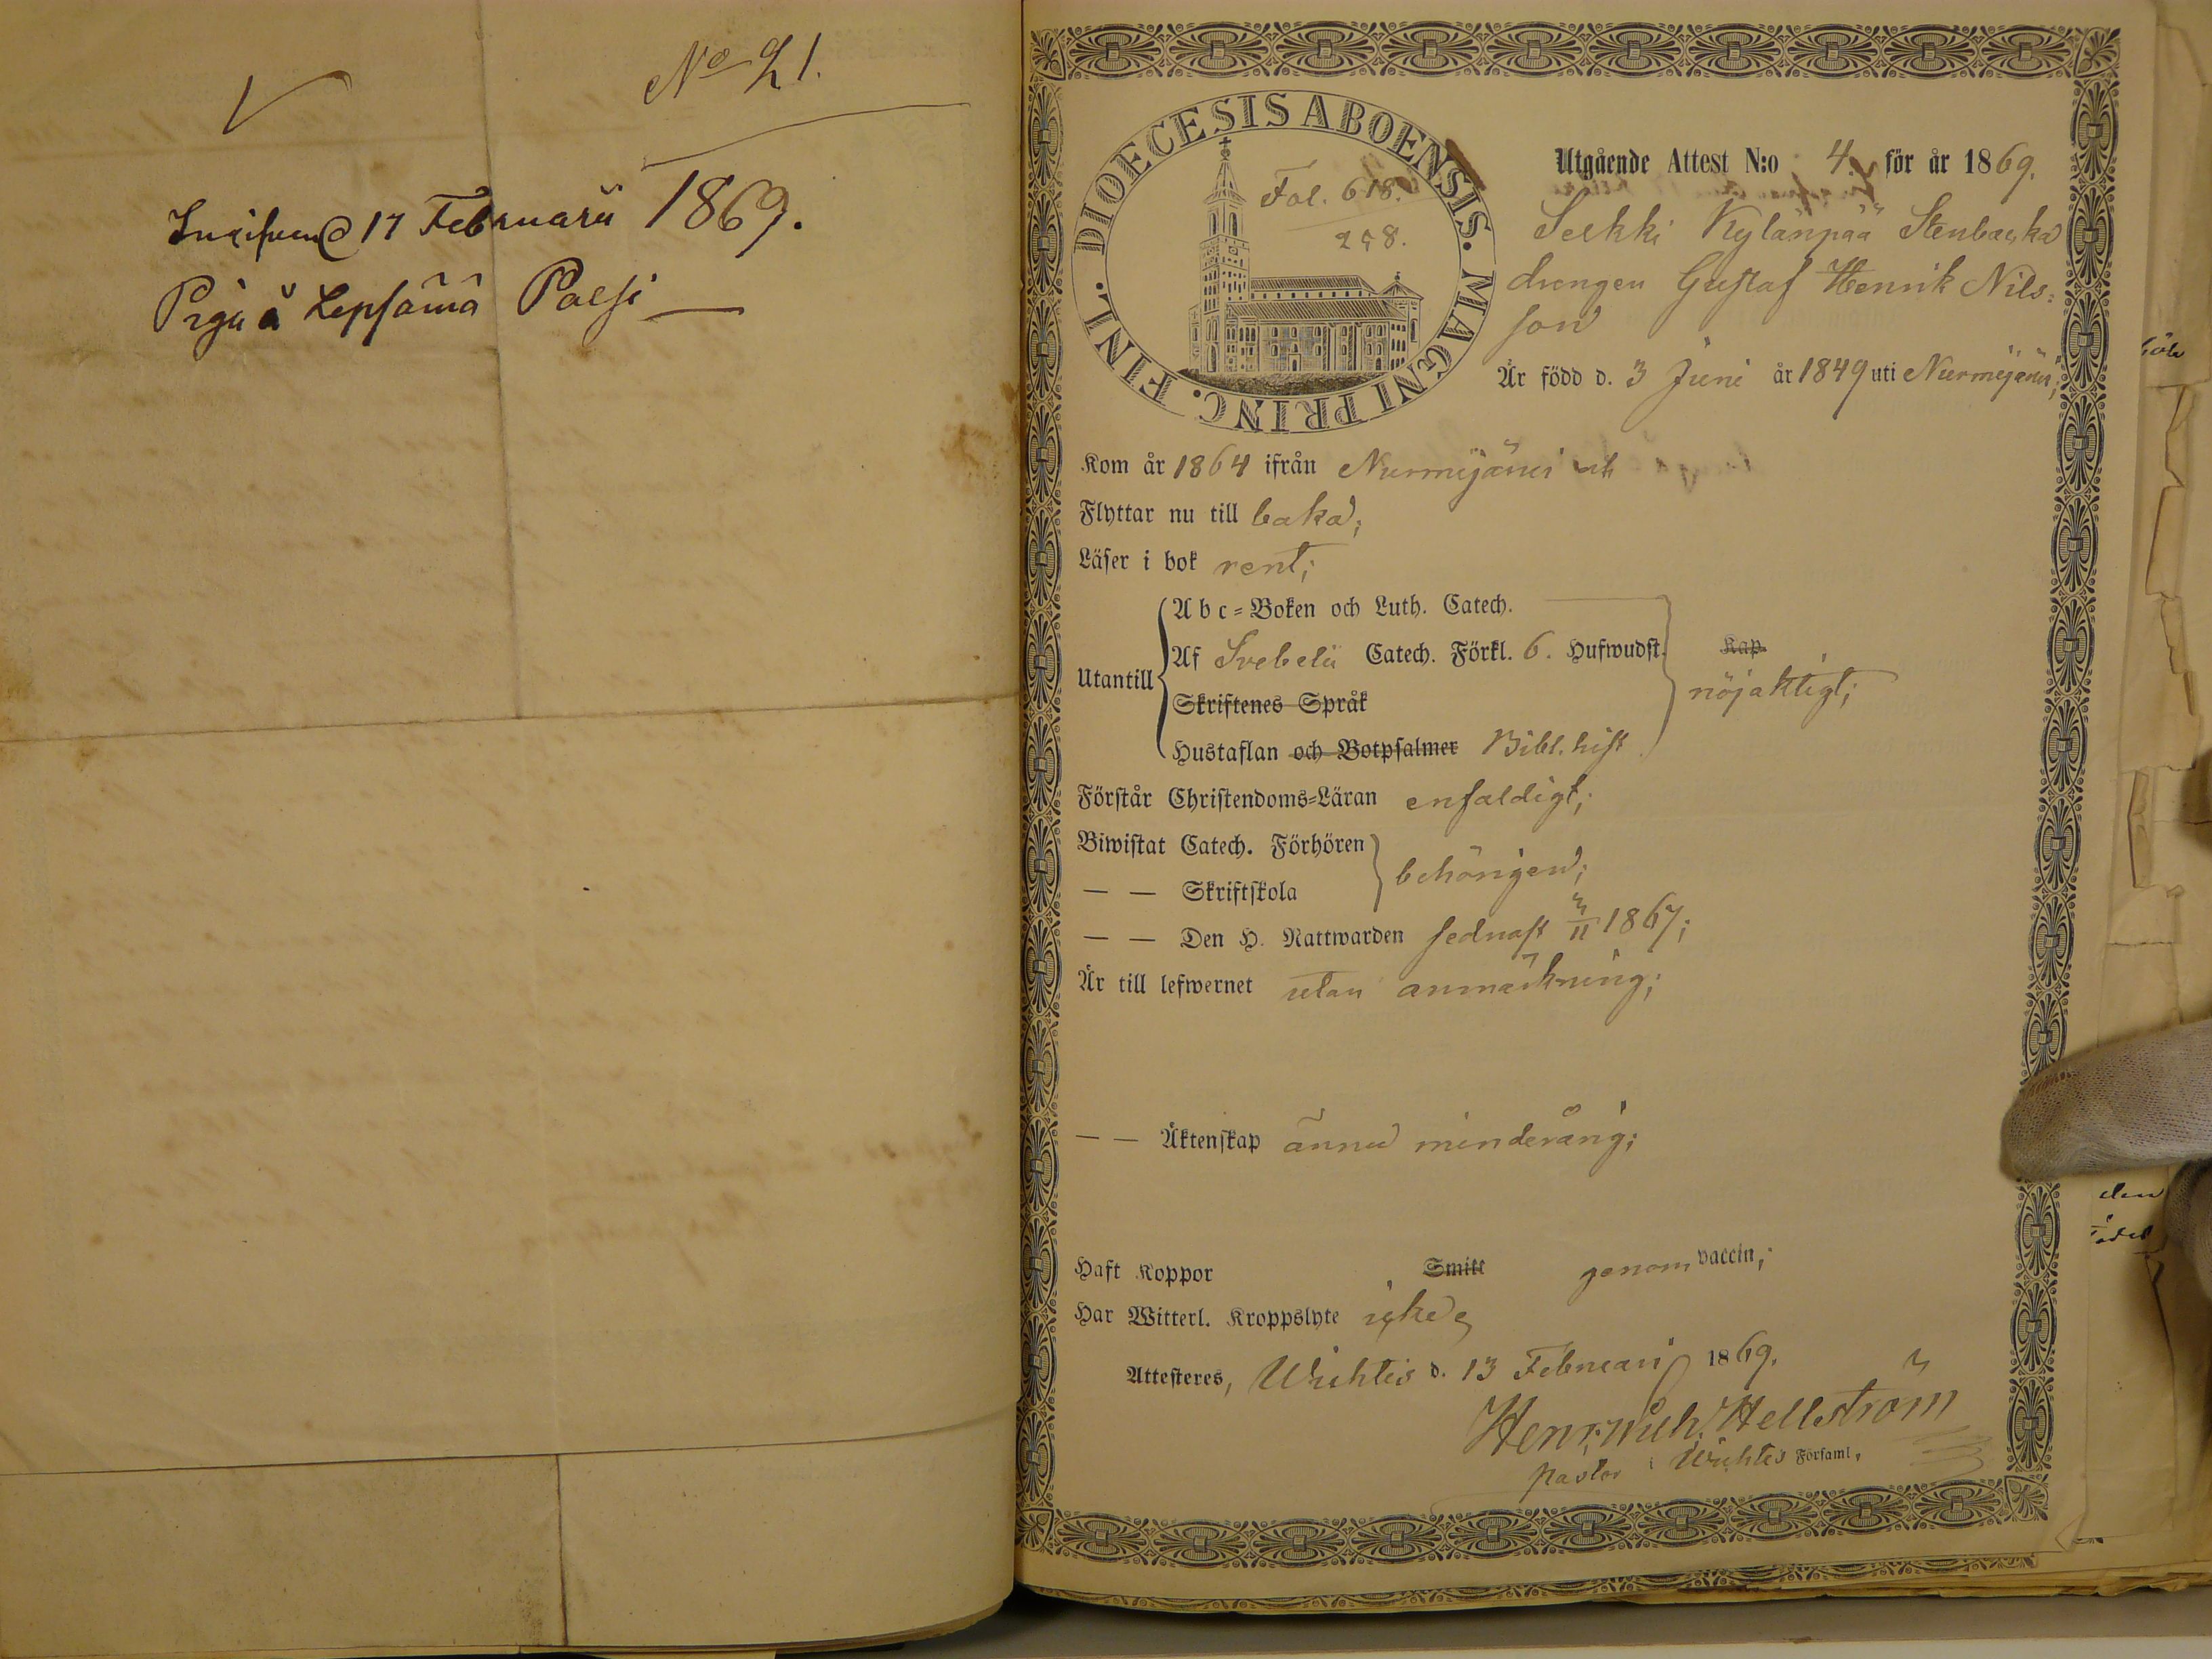 No 21.
17 Februarii 1869.
Piga å Lepsämä Paesi
DIOECESIS ABOENSIS. MAGNI PRINC. FINL.
Fol. 618.
258.
Utgående Attest N:o 4. för år 1869.
Selkki Kylänpää Stenbacka
drengen Gustaf Henrik Nils-
son
Är född d. 3 Juni år 1849 uti Nurmijärvi;
Kom år 1864 ifrån Nurmijärvi och
Flyttar nu till baka;
Läser i bok rent;
Utantill
A b c-Boken och Luth. Catech.
Af Svebelii Catech. Förkl. 6. Hufwudst. Kap.
Skriftenes Språk
nöjaktigt;
Hustaflan och Botpsalmer Bibl. hist.
Förstår Christendoms-Läran enfaldigt;
Biwistat Catech. Förhören
— — Skriftskola
behörigen;
— — Den H. Nattwarden sednast 3/11 1867;
Är till lefwernet utan anmärkning;
— — Äktenskap ännu minderårig;
Haft Koppor Smitt genom vaccin;
Har Witterl. Kroppslyte icke,
Attesteres, Wichtis d. 13 Februari 1869.
Henr. Wilh. Hellström
pastor i Wichtis Församl.